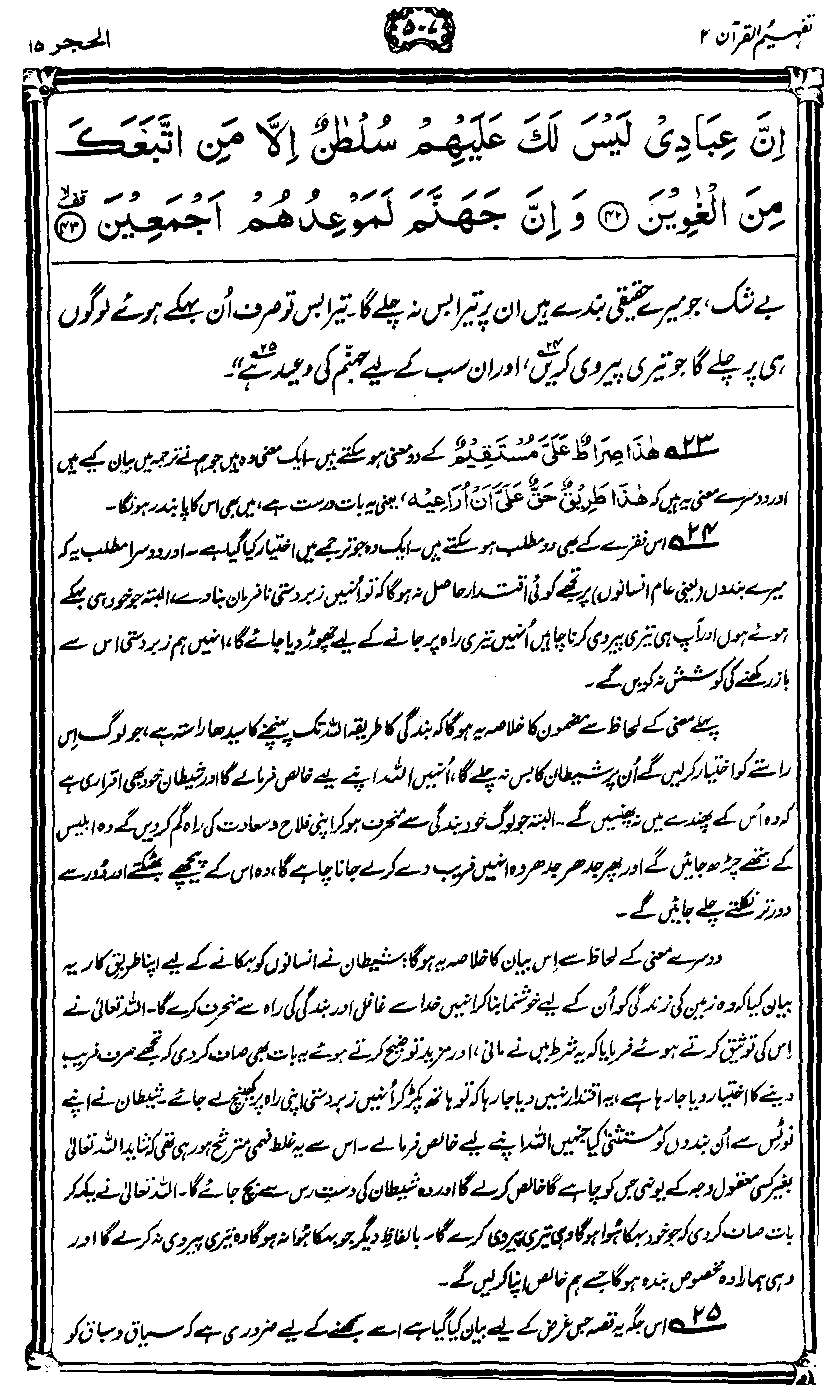 تفہیم القرآن ۲
۵۰۷
الحجر ۱۵
اِنَّ عِبَادِیْ لَیْسَ لَكَ عَلَیْهِمْ سُلْطٰنٌ اِلَّا مَنِ اتَّبَعَكَ
مِنَ الْغٰوِیْنَ ﴿۴۲﴾ وَ اِنَّ جَهَنَّمَ لَمَوْعِدُهُمْ اَجْمَعِیْنَ ﴿۴۳﴾ قف لا
بے شک، جو میرے حقیقی بندے ہیں ان پر تیرا بس نہ چلے گا۔ تیرا بس تو صرف اُن بہکے ہوئے لوگوں
ہی پر چلے گا جو تیری پیروی کریں۲۴، اور ان سب کے لیے جہنّم کی وعید ہے۲۵"۔
۲۳ھ هٰذَا صِرَاطٌ عَلَیَّ مُسْتَقِیْمٌ کے دو معنی ہو سکتے ہیں۔ ایک معنی وہ ہیں جو ہم نے ترجمہ میں بیان کیے ہیں
اور دوسرے معنی یہ ہیں کہ هٰذَا طَرِیْقٌ حَقٌّ عَلَیَّ اَنْ اُرَاعِیَه، یعنی یہ بات درست ہے، میں بھی اس کا پابند رہونگا۔
۲۴ھ اس فقرے کے بھی دو مطلب ہو سکتے ہیں۔ ایک وہ جو ترجمے میں اختیار کیا گیا ہے۔ اور دوسرا مطلب یہ کہ
میرے بندوں (یعنی عام انسانوں) پر تجھے کوئی اقتدار حاصل نہ ہوگا کہ تو اُنہیں زبردستی نافرمان بنا دے، البتہ جو خود ہی بہکے
ہوئے ہوں اور آپ ہی تیری پیروی کرنا چاہیں اُنہیں تیری راہ پر جانے کے لیے چھوڑ دیا جائے گا، انہیں ہم زبردستی اس سے
باز رکھنے کی کوشش نہ کریں گے۔
پہلے معنی کے لحاظ سے مضمون کا خلاصہ یہ ہوگا کہ بندگی کا طریقہ اللہ تک پہنچنے کا سیدھا راستہ ہے، جو لوگ اِس
راستے کو اختیار کرلیں گے اُن پر شیطان کا بس نہ چلے گا، اُنہیں اللہ اپنے لیے خالص فرمالے گا اور شیطان خود بھی اقراری ہے
کہ وہ اُس کے پھندے میں نہ پھنسیں گے۔ البتہ جو لوگ خود بندگی سے منحرف ہو کر اپنی فلاح و سعادت کی راہ گم کر دیں گے وہ ابلیس
کے ہتھے چڑھ جائیں گے اور پھر جدھر جدھر وہ انہیں فریب دے کر لے جانا چاہے گا، وہ اس کے پیچھے بھٹکتے اور دُور سے
دور تر نکلتے چلے جائیں گے۔
دوسرے معنی کے لحاظ سے اِس بیان کا خلاصہ یہ ہوگا: شیطان نے انسانوں کو بہکانے کے لیے اپنا طریق کار یہ
بیان کیا کہ وہ زمین کی زندگی کو اُن کے لیے خوشنما بنا کر انہیں خدا سے غافل اور بندگی کی راہ سے منحرف کرے گا۔ اللہ تعالیٰ نے
اِس کی توثیق کرتے ہوئے فرمایا کہ یہ شرط میں نے مانی، اور مزید توضیح کرتے ہوئے یہ بات بھی صاف کر دی کہ تجھے صرف فریب
دینے کا اختیار دیا جا رہا ہے، یہ اقتدار نہیں دیا جا رہا کہ تو ہاتھ پکڑ کر اُنہیں زبردستی اپنی راہ پر کھینچ لے جائے۔ شیطان نے اپنے
نوٹس سے اُن بندوں کو مستثنیٰ کیا جنہیں اللہ اپنے لیے خالص فرمالے۔ اس سے یہ غلط فہمی مترشح ہو رہی تھی کہ شاید اللہ تعالیٰ
بغیر کسی معقول وجہ کے یونہی جس کو چاہے گا خالص کرلے گا اور وہ شیطان کی دست رس سے بچ جائے گا۔ اللہ تعالیٰ نے یہ کہہ کر
بات صاف کردی کہ جو خود بہکا ہُوا ہوگا وہی تیری پیروی کرے گا۔ بالفاظ دیگر جو بہکا ہُوا نہ ہوگا وہ تیری پیروی نہ کرے گا اور
وہی ہمارا وہ مخصوص بندہ ہوگا جسے ہم خالص اپنا کرلیں گے۔
۲۵ھ اس جگہ یہ قصہ جس غرض کے لیے بیان کیا گیا ہے اسے سمجھنے کے لیے ضروری ہے کہ سیاق و سباق کو